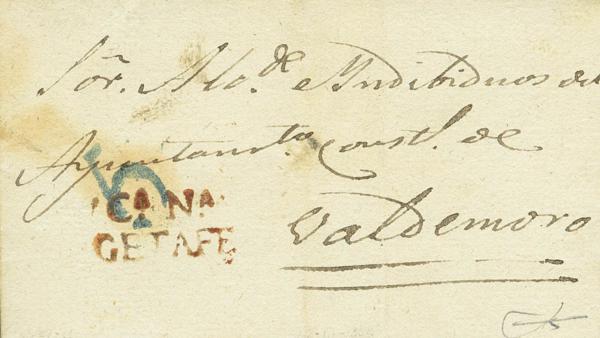 Sōr. Alc.ᵈᵉ e Yndibiduos del
Ayuntam.ᵗᵒ Constl. de
Valdemoro
5
CANA
GETAFE